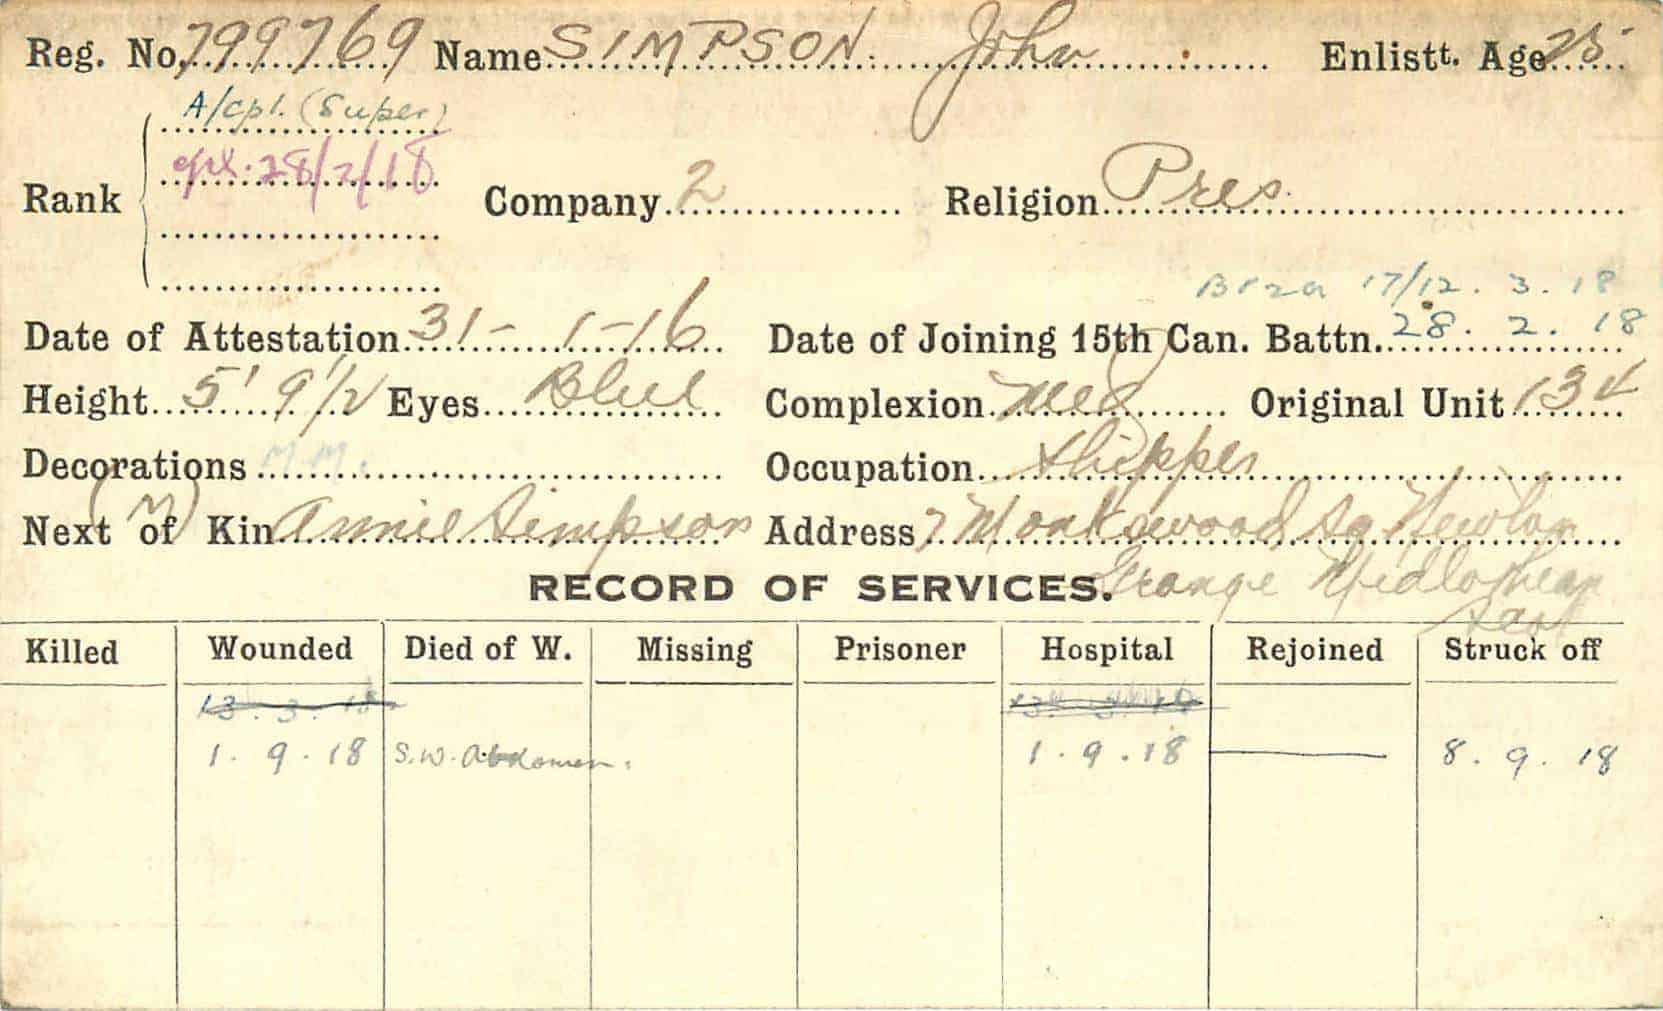 Reg. No. 799769 Name SIMPSON. John Enlistt. Age 25
A/Cpl. (Super)
Cpl. 28/2/18
Rank Company 2 Religion Pres.
17/12. 3. 18
Date of Attestation 31-1-16 Date of Joining 15th Can. Battn. 28. 2. 18
Height 5' 9 1/2 Eyes Blue Complexion Med Original Unit 134
Decorations M.M. Occupation Shipper
(M)
Next of Kin Annie Simpson Address 7 Monkswood Sq Newton
Grange Midlothean
Scot
RECORD OF SERVICES.
Killed Wounded Died of W. Missing Prisoner Hospital Rejoined Struck off
13. 3. 18 13. 3. 18
1. 9. 18 S.W. Abdomen. 1. 9. 18 8. 9. 18